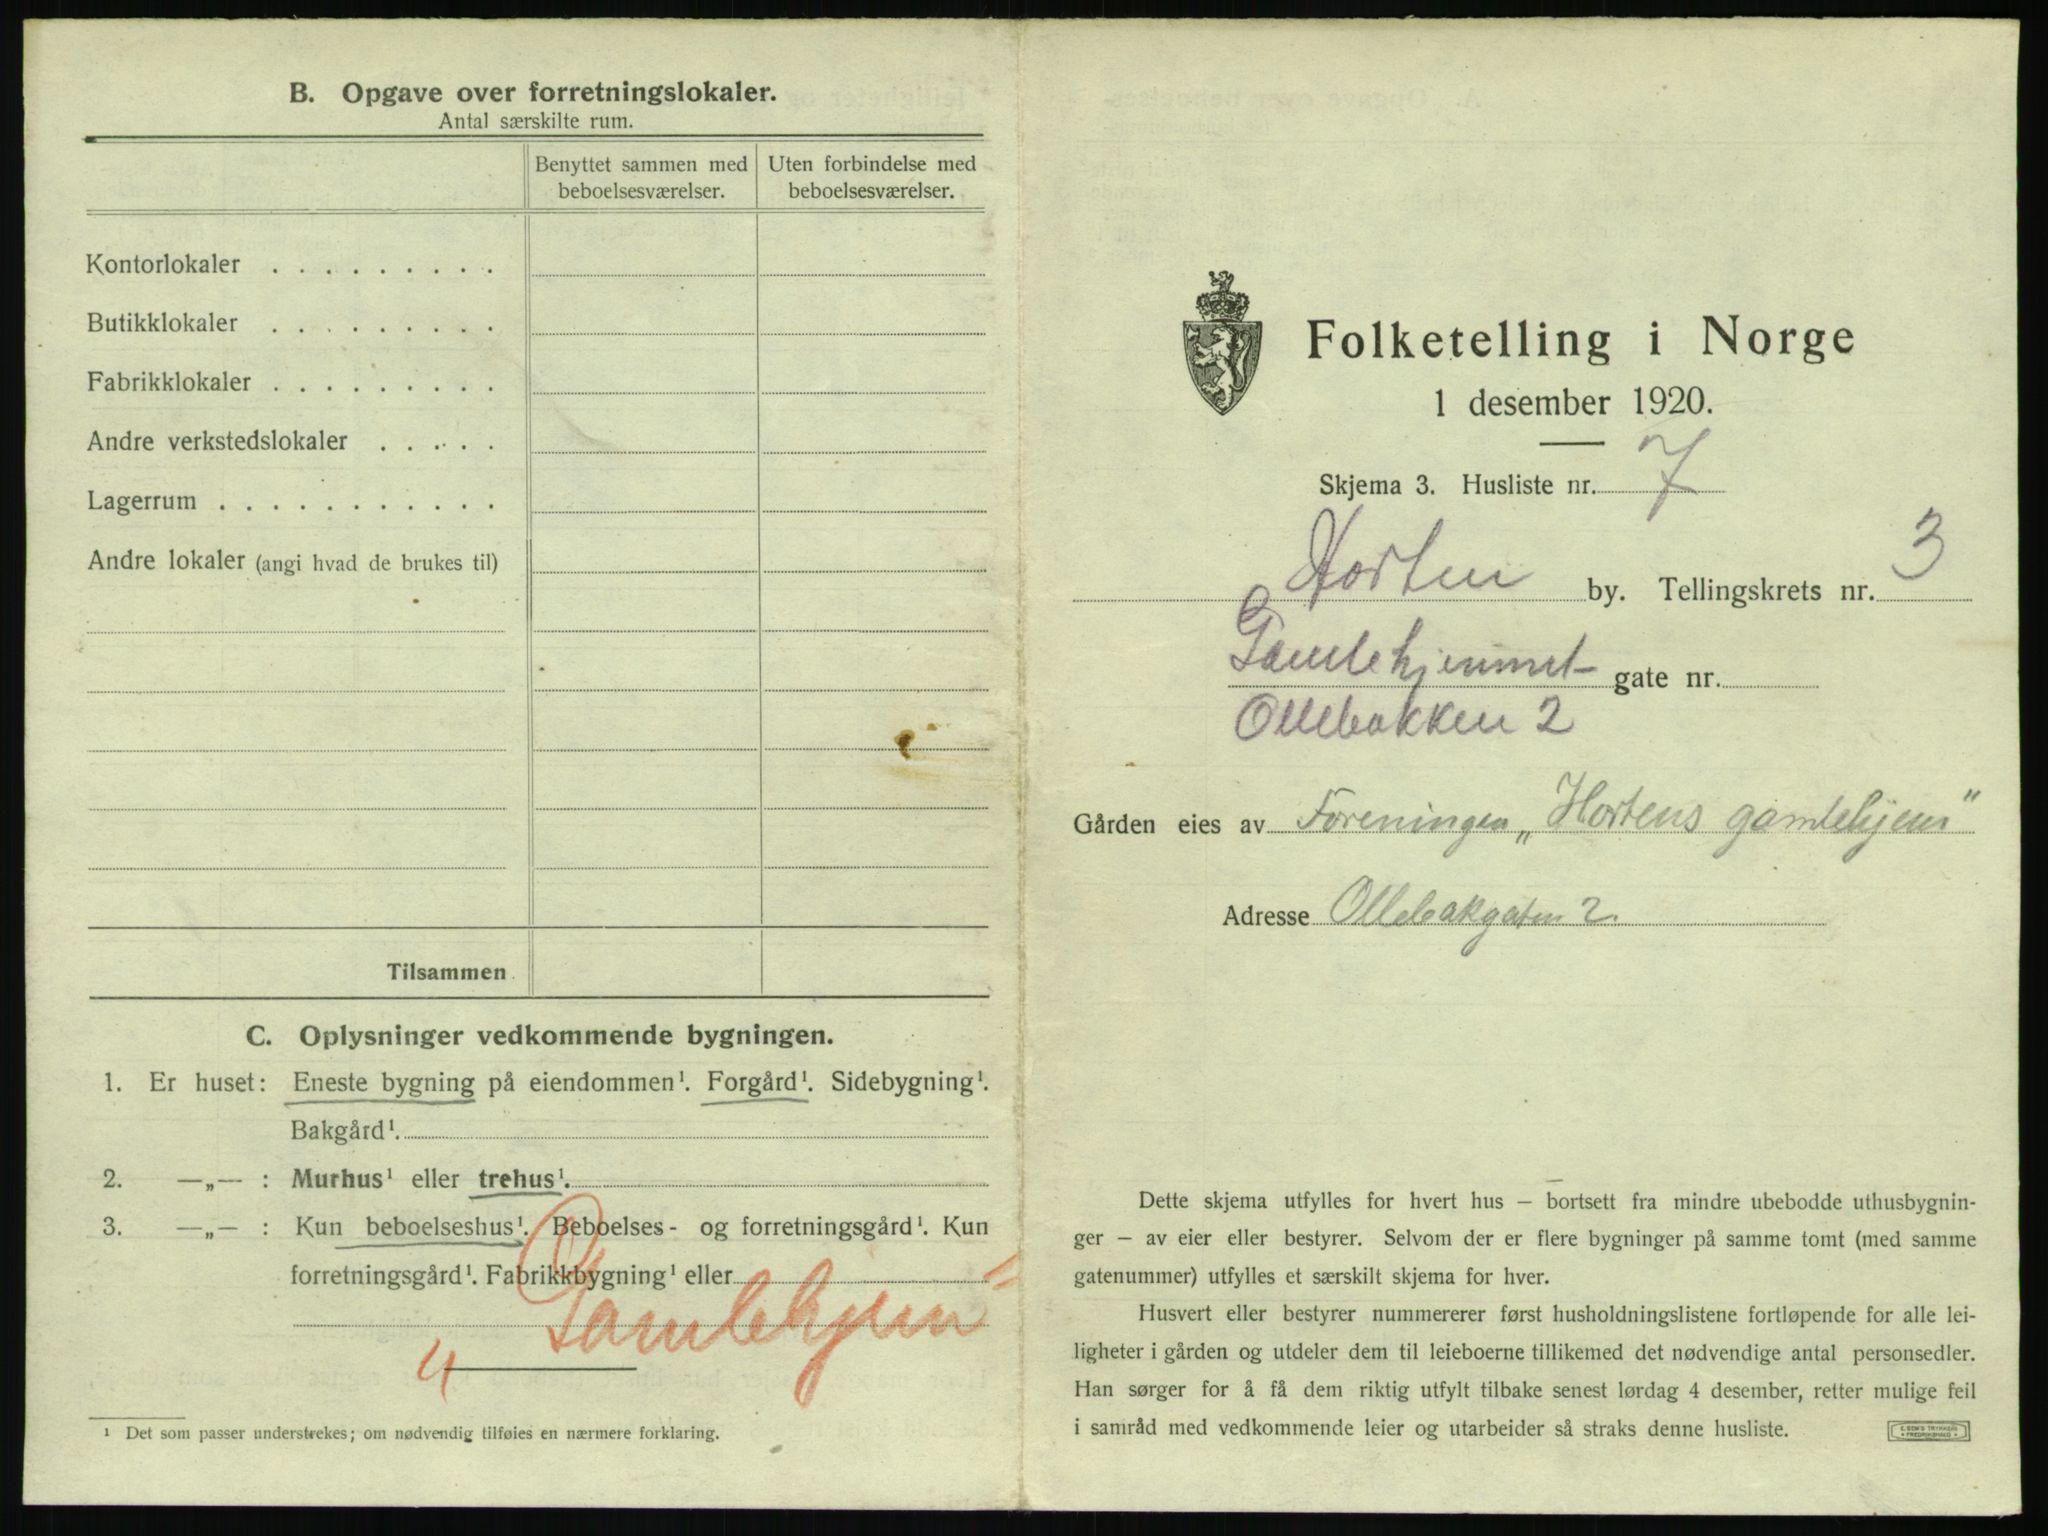 B. Opgave over forretningslokaler.
Antal særskilte rum.
Benyttet sammen med beboelsesværelser.
Uten forbindelse med beboelsesværelser.
Kontorlokaler . . . . . . . . .
Butikklokaler . . . . . . . . .
Fabrikklokaler . . . . . . . . .
Andre verkstedslokaler . . . . .
Lagerrum . . . . . . . . . . . .
Andre lokaler (angi hvad de brukes til)
Tilsammen
C. Oplysninger vedkommende bygningen.
1. Er huset: Eneste bygning på eiendommen¹. Forgård¹. Sidebygning¹.
Bakgård¹.
2. —„— : Murhus¹ eller trehus¹.
3. —„— : Kun beboelseshus¹. Beboelses- og forretningsgård¹. Kun
forretningsgård¹. Fabrikkbygning¹ eller
„Gamlehjem"
¹ Det som passer understrekes; om nødvendig tilføies en nærmere forklaring.
Folketelling i Norge
1 desember 1920.
Skjema 3. Husliste nr. 7
Horten by. Tellingskrets nr. 3
Gamlehjemmet gate nr.
Ollebakken 2
Gården eies av Foreningen „Hortens gamlehjem"
Adresse Ollebakgaten 2.
Dette skjema utfylles for hvert hus — bortsett fra mindre ubebodde uthusbygnin-
ger — av eier eller bestyrer. Selvom der er flere bygninger på samme tomt (med samme
gatenummer) utfylles et særskilt skjema for hver.
Husvert eller bestyrer nummererer først husholdningslistene fortløpende for alle lei-
ligheter i gården og utdeler dem til leieboerne tillikemed det nødvendige antal personsedler.
Han sørger for å få dem riktig utfylt tilbake senest lørdag 4 desember, retter mulige feil
i samråd med vedkommende leier og utarbeider så straks denne husliste.